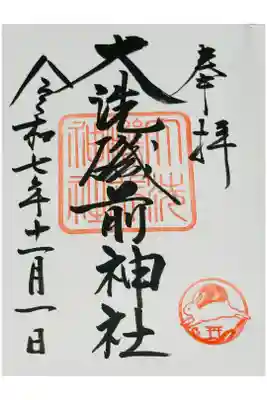 奉拝
大洗磯前神社
令和七年十一月一日